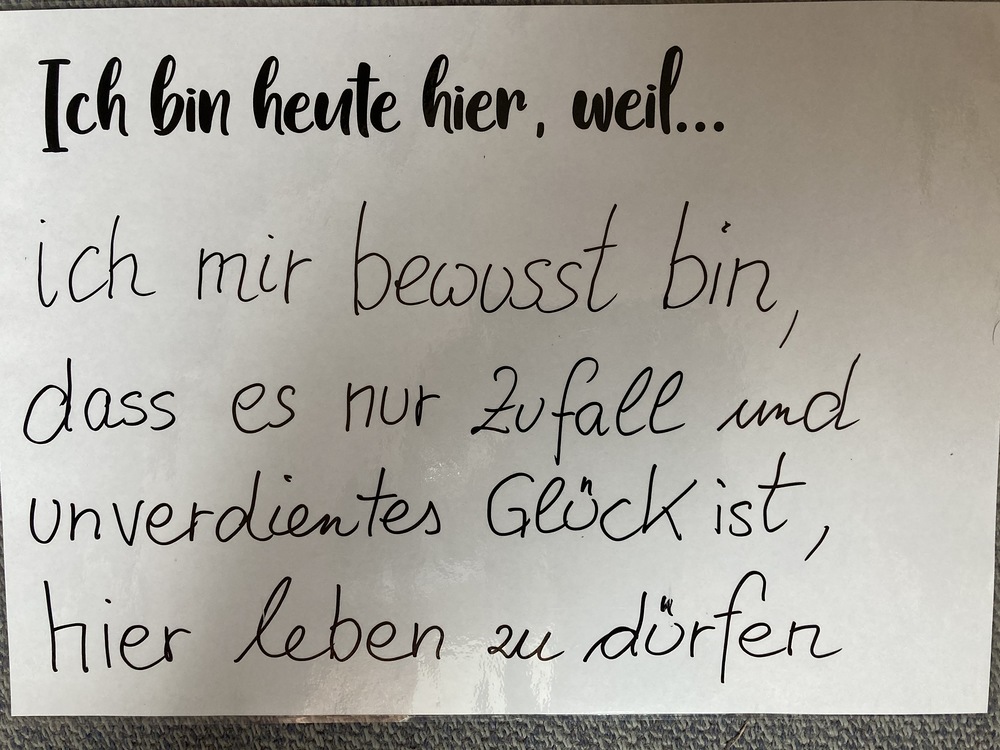 Ich bin heute hier, weil...
ich mir bewusst bin,
dass es nur Zufall und
unverdientes Glück ist,
hier leben zu dürfen